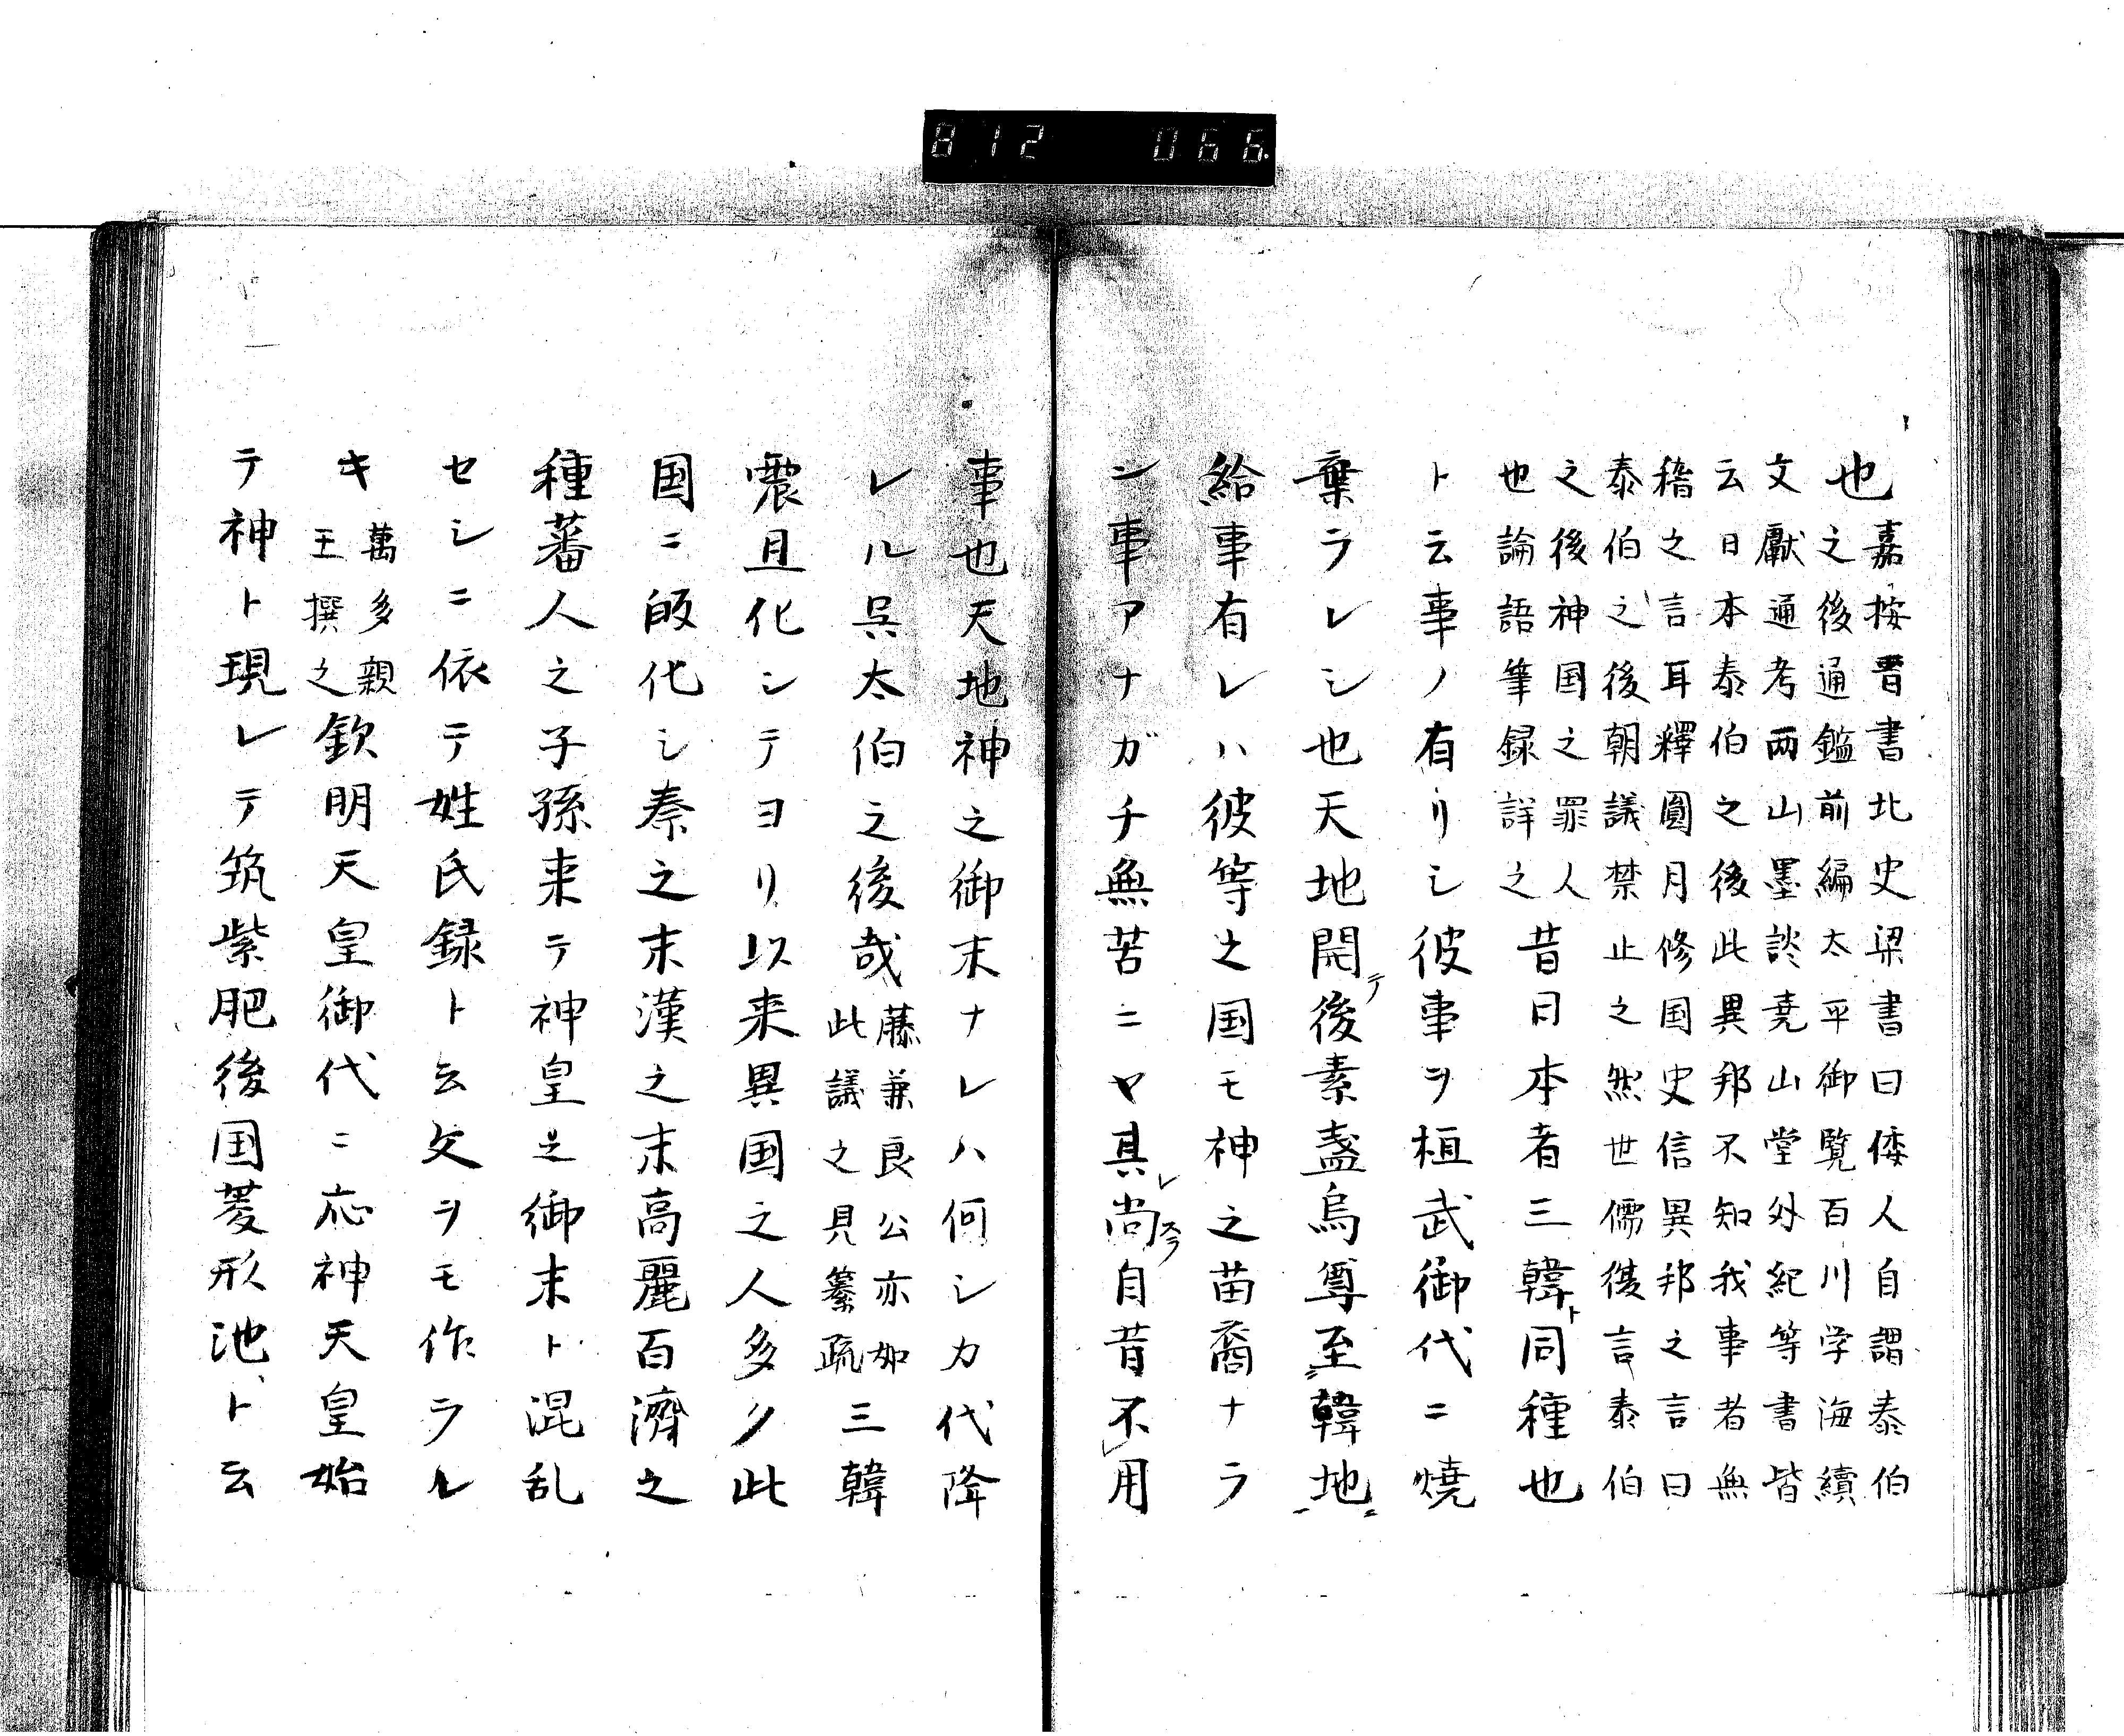 812 066.
也
嘉按晋書北史梁書曰倭人自謂泰伯
之後通鑑前編太平御覧百川学海續
文獻通考両山墨談尭山堂外紀等書皆
云日本泰伯之後此異邦不知我事者無
稽之言耳釋圓月修国史信異邦之言曰
泰伯之後朝議禁止之然世儒復言泰伯
之後神国之罪人
也論語筆録詳之
昔日本者三韓ト同種也
ト云事ノ有リシ彼事ヲ桓武御代ニ焼
棄ラレシ也天地開テ後素盞烏尊至韓地
給事有レハ彼等之国モ神之苗裔ナラ
ン事アナガチ無苦ニヤ其レ尚スラ自昔不レ用
事也天地神之御末ナレハ何シカ代降
レル呉太伯之後哉
藤兼良公亦如
此議之見纂疏
三韓
震旦化シテヨリ以来異国之人多ク此
国ニ皈化シ秦之末漢之末高麗百濟之
種蕃人之子孫来テ神皇之御末ト混乱
セシニ依テ姓氏録ト云文ヲモ作ラル
キ
萬多親
王撰之
欽明天皇御代ニ応神天皇始
テ神ト現レテ筑紫肥後国菱形池ト云